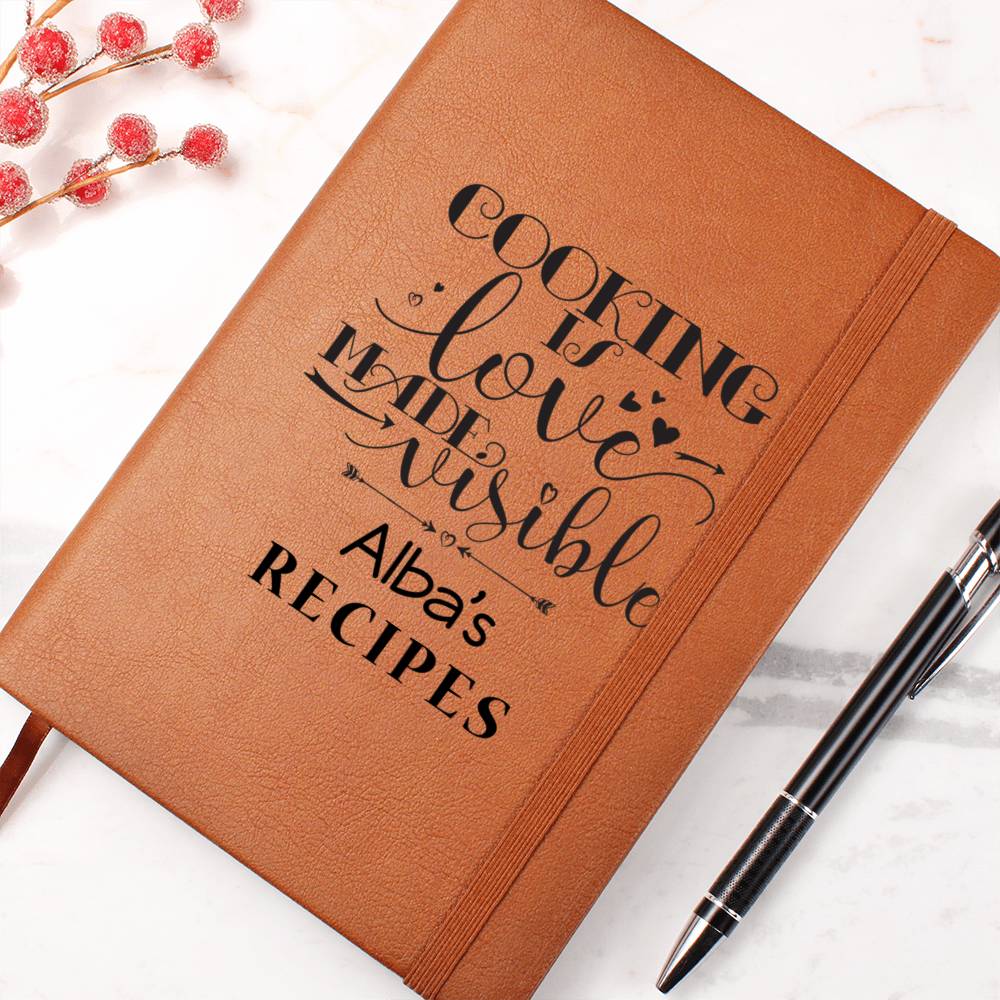 COOKING
IS
love
MADE
visible
Alba's
RECIPES